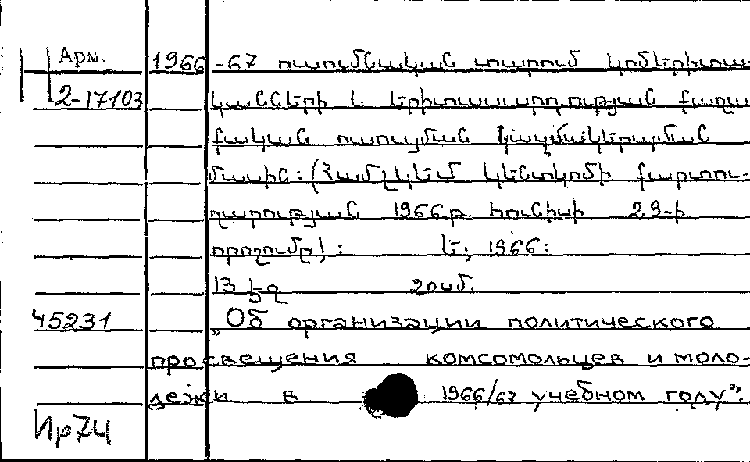 Арм. 1966-67 ուսումնական տարում կոմերիտա-
2-17103 կանների և երիտասարդության քաղա-
քական ուսուցման կազմակերպման
մասին: (ՀԱՄԼԿԵՄ կենտկոմի քարտու-
ղարության 1966թ. հունիսի 29-ի
որոշումը): Ե., 1966:
13 էջ
45231 „Об организации политического
просвещения комсомольцев и моло-
дежи в 1966/67 учебном году".
Ир74